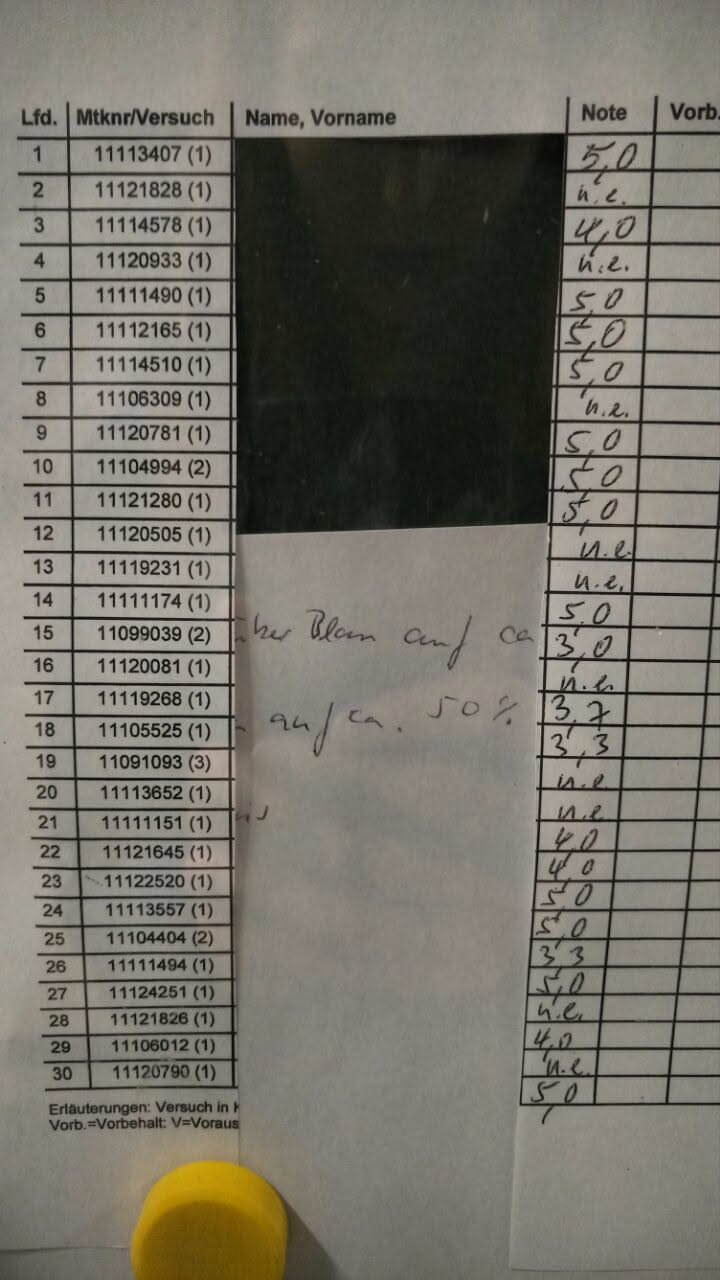 Lfd. Mtknr/Versuch Name, Vorname Note Vorb.
1 11113407 (1) 5,0
2 11121828 (1) n.e.
3 11114578 (1) 4,0
4 11120933 (1) n.e.
5 11111490 (1) 5,0
6 11112165 (1) 5,0
7 11114510 (1) 5,0
8 11106309 (1) n.e.
9 11120781 (1) 5,0
10 11104994 (2) 5,0
11 11121280 (1) 5,0
12 11120505 (1) n.e.
13 11119231 (1) n.e.
14 11111174 (1) 5,0
15 11099039 (2) auf ca 3,0
16 11120081 (1) n.e.
17 11119268 (1) auf ca. 50% 3,7
18 11105525 (1) 3,3
19 11091093 (3) n.e.
20 11113652 (1) n.e
21 11111151 (1) 4,0
22 11121645 (1) 4,0
23 11122520 (1) 5,0
24 11113557 (1) 5,0
25 11104404 (2) 3,3
26 11111494 (1) 5,0
27 11124251 (1) n.e.
28 11121826 (1) 4,0
29 11106012 (1) n.e.
30 11120790 (1) 5,0
Erläuterungen: Versuch in
Vorb.=Vorbehalt: V=Voraus